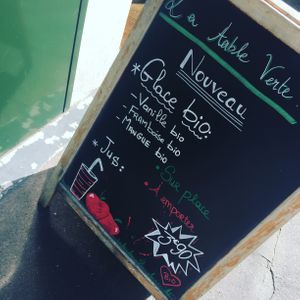 La table Verte
Nouveau
*Glace bio:
- Vanille bio
- Framboise bio
- Mangue bio
*Jus:
• Sur place
• A emporter
3€90
BIO